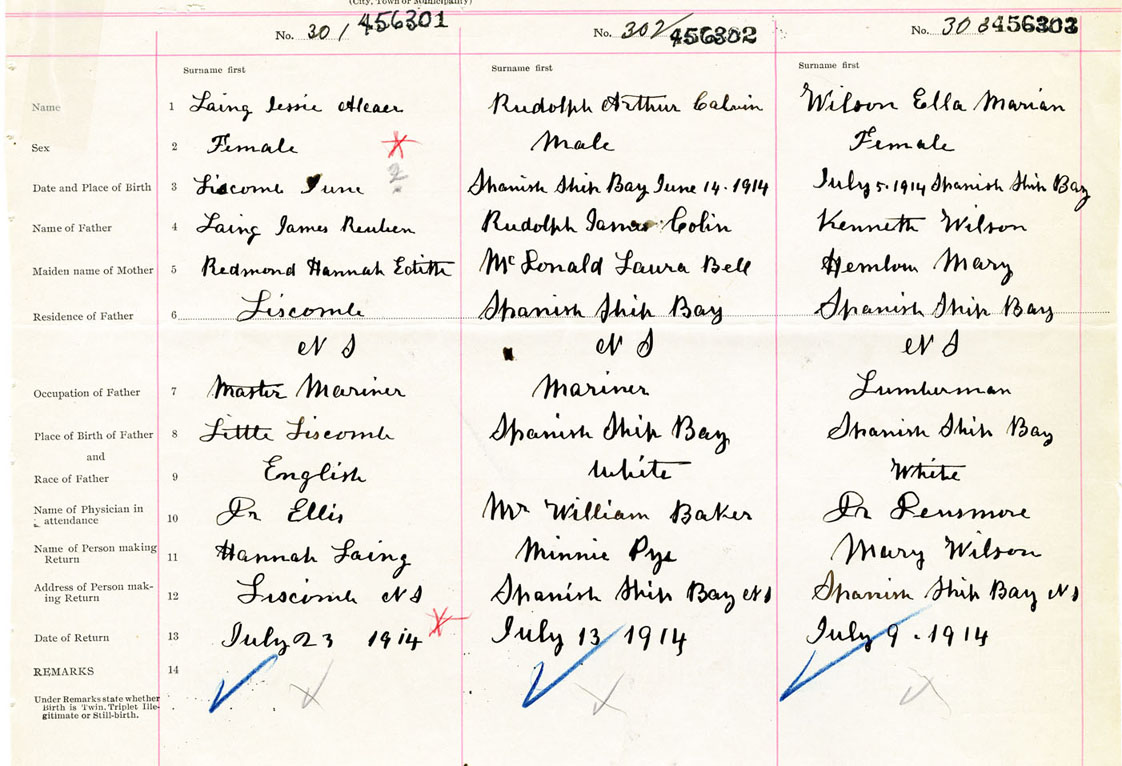 (City, Town or Municipality)
No. 301 456301 No. 302 456302 No. 303 456303
Surname first Surname first Surname first
Name 1 Laing Jessie Rudolph Arthur Calvin Wilson Ella Marian
Sex 2 Female Male Female
Date and Place of Birth 3 Liscomb June ? Spanish Ship Bay June 14 - 1914 July 5 - 1914 Spanish Ship Bay
Name of Father 4 Laing James Reuben Rudolph James Colin Kenneth Wilson
Maiden name of Mother 5 Redmond Hannah Edith McDonald Laura Bell Hemlow Mary
Residence of Father 6 Liscomb Spanish Ship Bay Spanish Ship Bay
N S N S N S
Occupation of Father 7 Master Mariner Mariner Lumberman
Place of Birth of Father 8 Little Liscomb Spanish Ship Bay Spanish Ship Bay
and
Race of Father 9 English White White
Name of Physician in
attendance 10 Dr Ellis Mr William Baker Dr Densmore
Name of Person making
Return 11 Hannah Laing Minnie Pye Mary Wilson
Address of Person mak-
ing Return 12 Liscomb N S Spanish Ship Bay N S Spanish Ship Bay N S
Date of Return 13 July 23 1914 July 13 1914 July 9 - 1914
REMARKS 14
Under Remarks state whether
Birth is Twin, Triplet Ille-
gitimate or Still-birth.